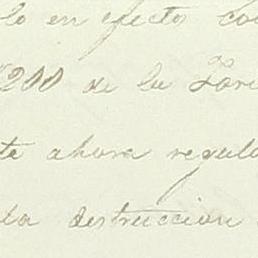 lo en efecto
200 de la
te ahora regula
da destruccion